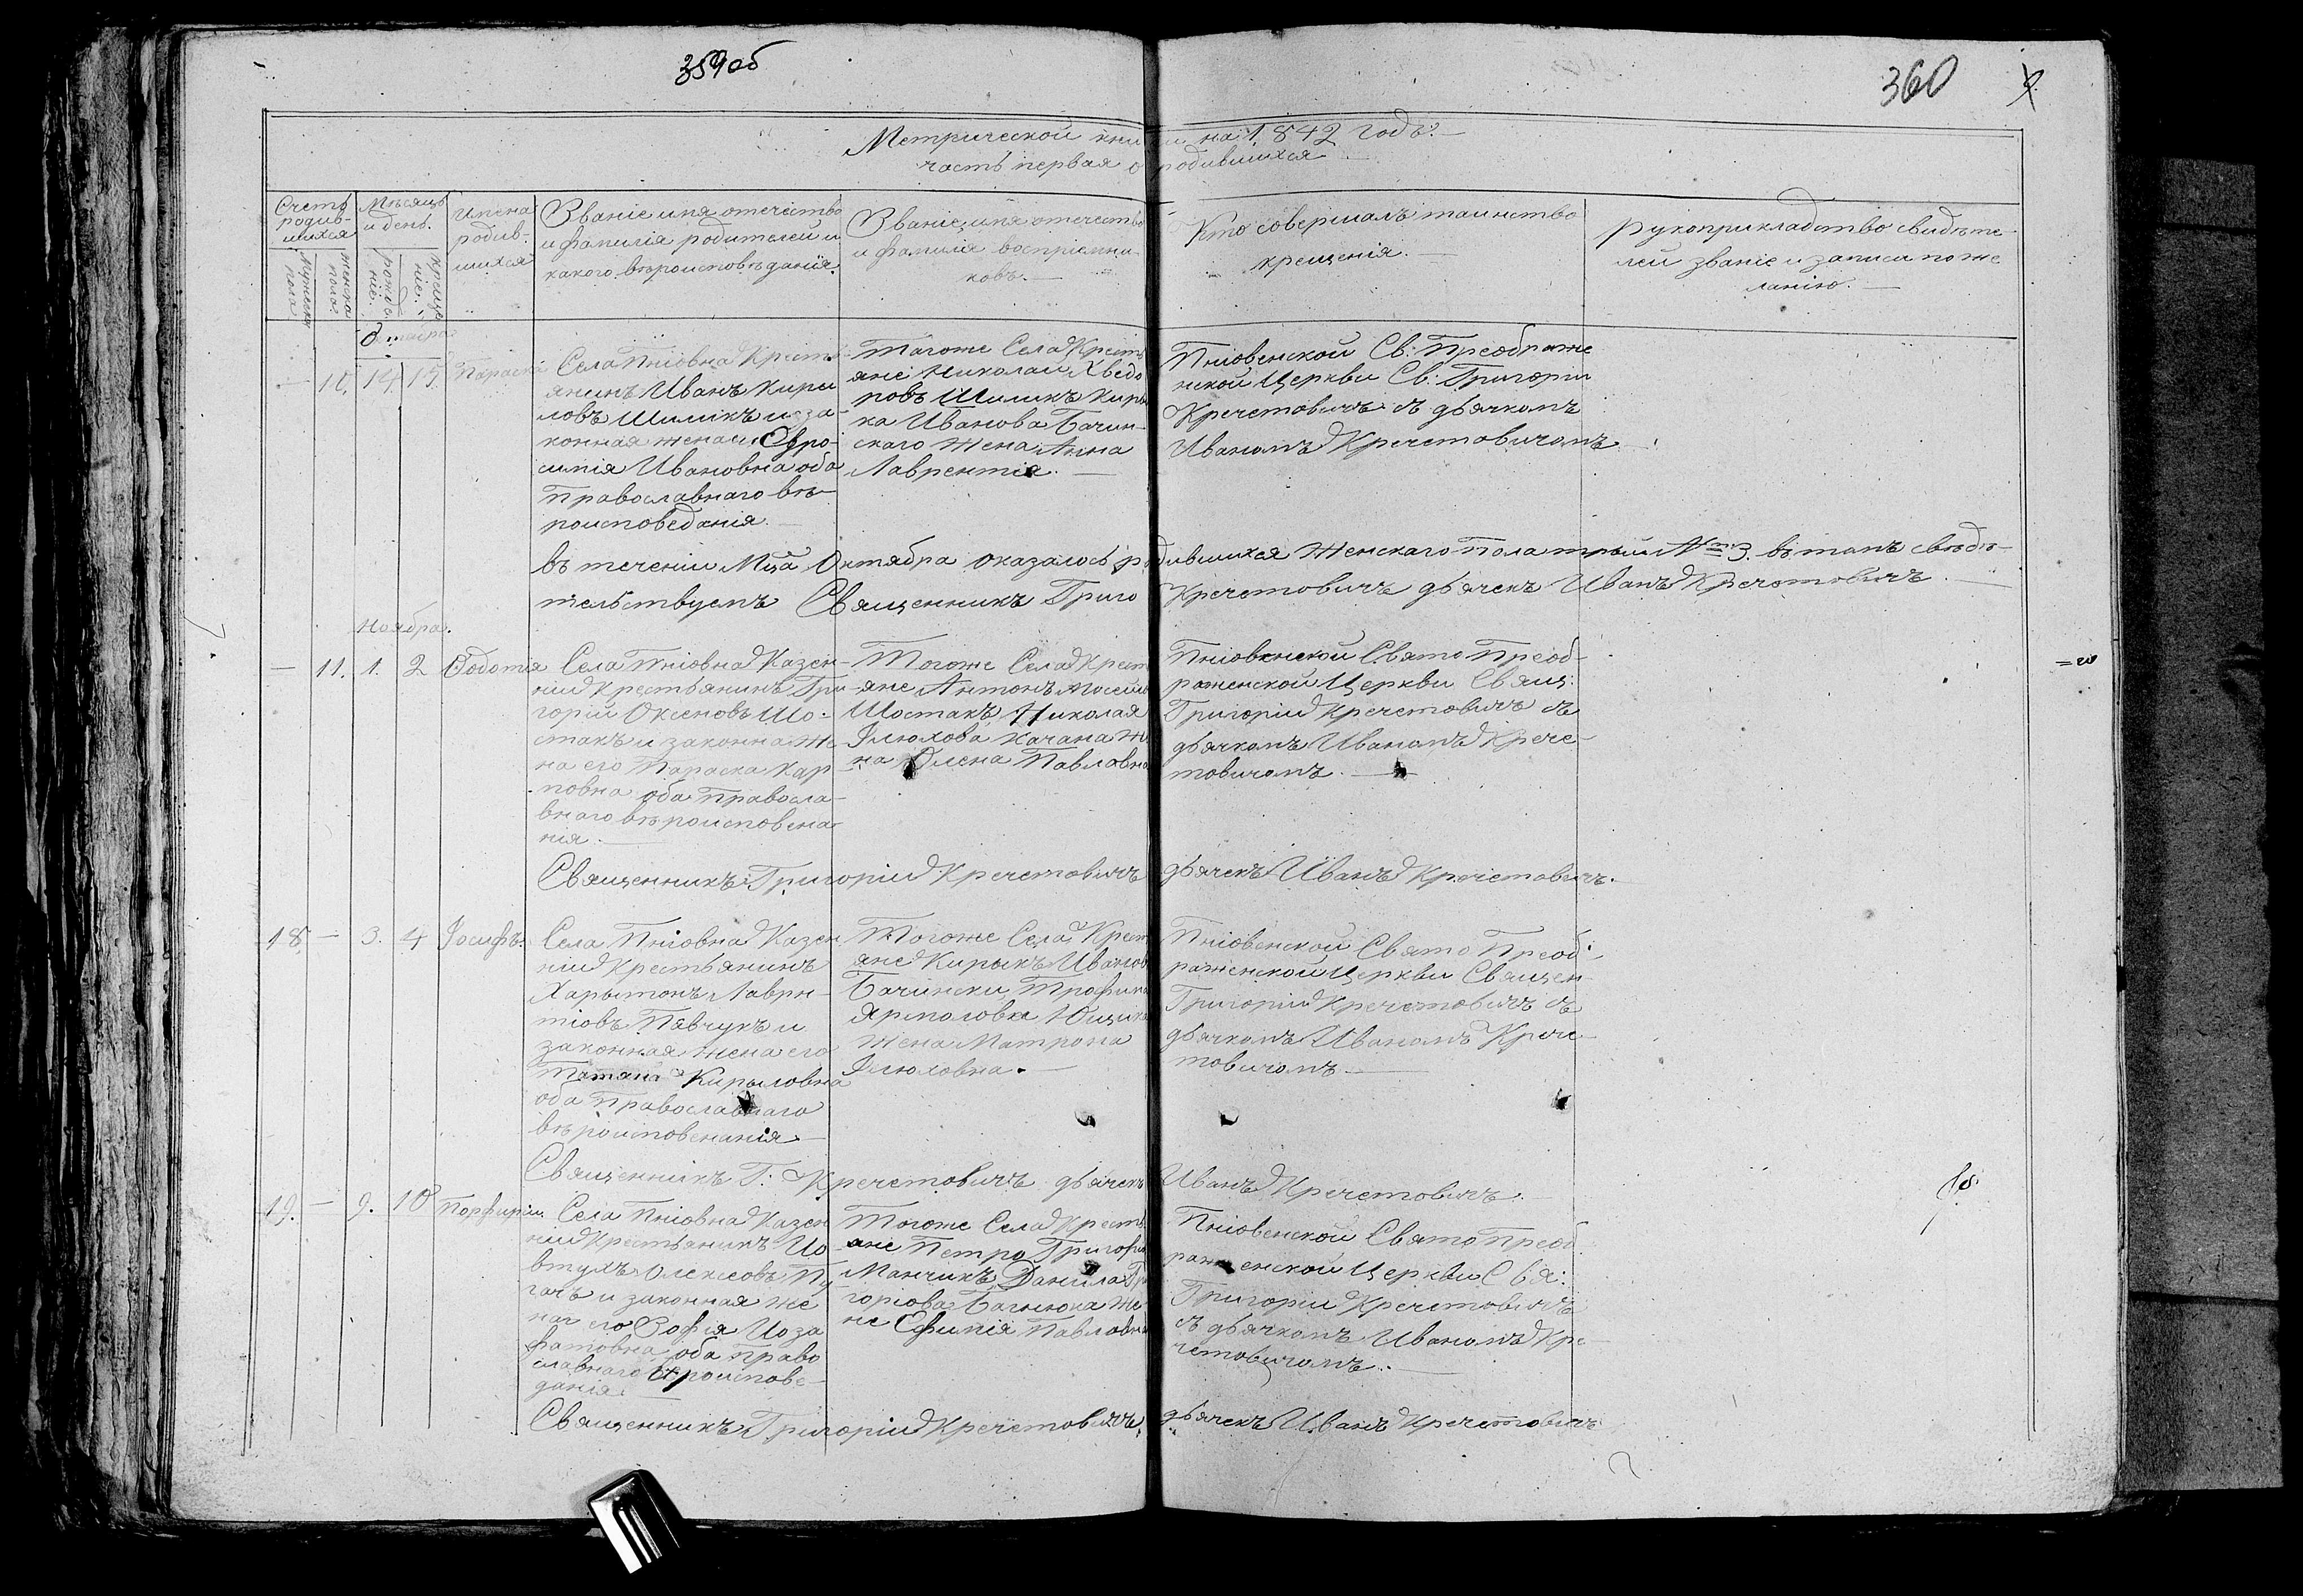 359об
360
Метрической книги на 1842 годъ.
часть первая о родившихся
Счетъ родив-шихся
Мѣсяцъ и день.
Имена родив-шихся
Званіе имя отечество
и фамилія родителей и
какого вѣроисповѣданія.
Званіе, имя отечество
и фамилія воспріемни-
ковъ.
Кто совершалъ таинство
крещенія.
Рукоприкладство свидѣте-
лей званіе и записи по же
ланію.
мужеска пола
женска пола
рожде-ніе.
креще-ніе.
Октября
— 10. 14. 15. Параскі
Села Пніовна Кресть-
янинъ Иванъ Кири
ловъ Шишикъ и за-
конная жена Евро-
синія Ивановна оба
Православнаго вѣ-
роисповеданія.
Тогоже Села Кресть
яне Николай Хведо
ровъ Шишикъ Киры
ка Иванова Бачин-
скаго жена Анна
Лаврентія.
Пніовенской Св: Преображе
нской Церкви Св: Григорій
Кречетовичъ съ дьячкомъ
Иваномъ Кречетовичомъ
въ теченіи Мца Октября оказалось родившихся Женскаго Пола три № 3. въ томъ свѣдѣ-
тельствуемъ Священникъ Григо Кречетовичъ дьячекъ Иванъ Кречетовичъ.
Ноября.
— 11. 1. 2 Өодотія
Села Пніовна Казен-
ній Крестьянинъ Гри-
горій Оксеновъ Шо-
стакъ и законна же
на его Параска Кар
повна оба Правосла-
внаго вѣроисповена
нія.
Тогоже Села Крест
яне Антонъ Мосеив
Шостакъ, Николая
Илюхова Качана же
на Олена Павловна
Пніовенской Свято Преоб-
раженской Церкви Свящ:
Григорій Кречетовичъ съ
дьячкомъ Иваномъ Крече-
товичомъ.
Священникъ Григорій Кречетовичъ дьячекъ Иванъ Кречетовичъ.
18. — 3. 4 Іосифъ.
Села Пніовна Казен
ній Крестьянинъ
Харытонъ Лаврн-
тіовъ Павчукъ и
законная жена его
Татьяна Кирыловна
оба Православнаго
вѣроисповенанія
Тогоже Села Крест
яне Кирыкъ Иванов
Бачински, Трофима
Ярмоловка Ющика
жена Матрона
Илюховна.
Пніовенской Свято Преоб-
раженской Церкви Священ-
Григорій Кречетовичъ съ
дьячкомъ Иваномъ Крече-
товичомъ.
Священникъ Г: Кречетовичъ дьячекъ Иванъ Кречетовичъ.
19. — 9. 10 Порфирій.
Села Пніовна Казен
ній Крестьянинъ Ио
втухъ Олексовъ Пу
гачъ и законная же
на его Зофія Иоза
фатовна оба Право
славнаго вѣроиспове-
данія.
Тогоже Села Кресть
яне Петро Григорі
Манчикъ, Данила Гри
горіова Багнюка же
на Ефимія Павловна
Пніовенской Свято Преоб
раженской Церкви Свя:
Григорій Кречетовичъ
съ дьячкомъ Иваномъ Кре-
четовичомъ.
Священникъ Григорій Кречетовичъ, дьячекъ Иванъ Кречетовичъ